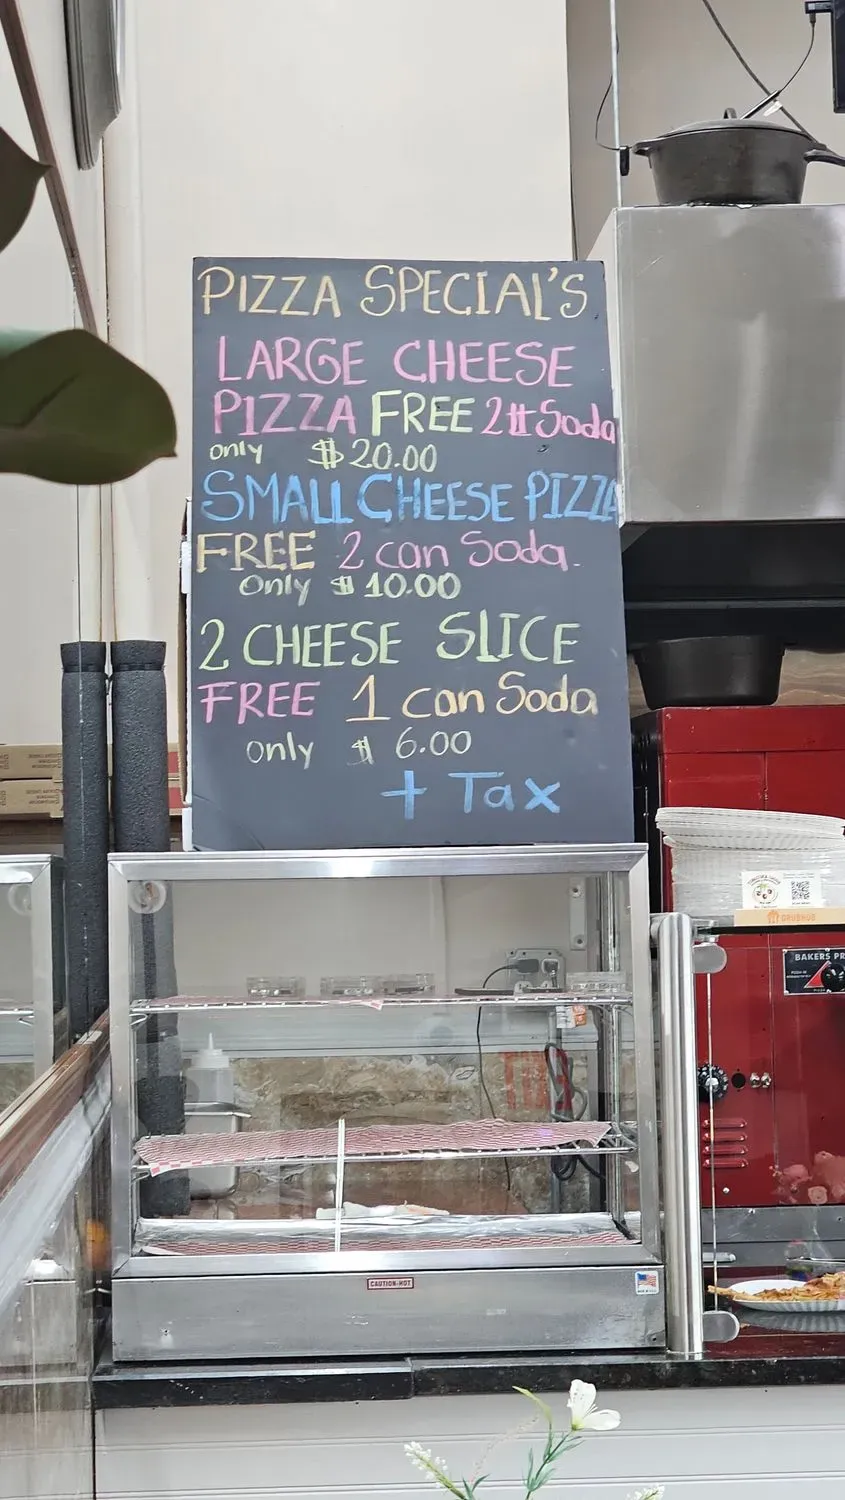 PIZZA SPECIAL'S
LARGE CHEESE
PIZZA FREE 2lt Soda
only $20.00
SMALL CHEESE PIZZA
FREE 2 can Soda.
only $10.00
2 CHEESE SLICE
FREE 1 can Soda
only $ 6.00
+ Tax
GRUBHUB
BAKERS PR
CAUTION-HOT